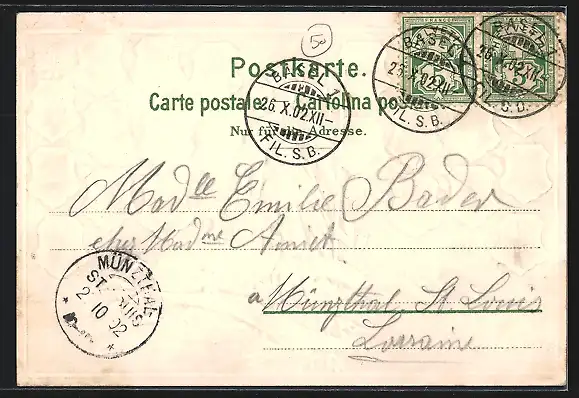 13
Postkarte.
Carte postale. Cartolina po
Nur für die Adresse.
BASEL 1
26.X.02.XII-
FIL. S.B.
BASEL 1
26.X.02.XII-
FIL. S.B.
BASEL 1
26.X.02.XII-
FIL. S.B.
Madelle Emilie Bader
chez Madme
a Münzthal St Louis
Lorraine
MÜNZTHAL
ST. LOUIS
10 02